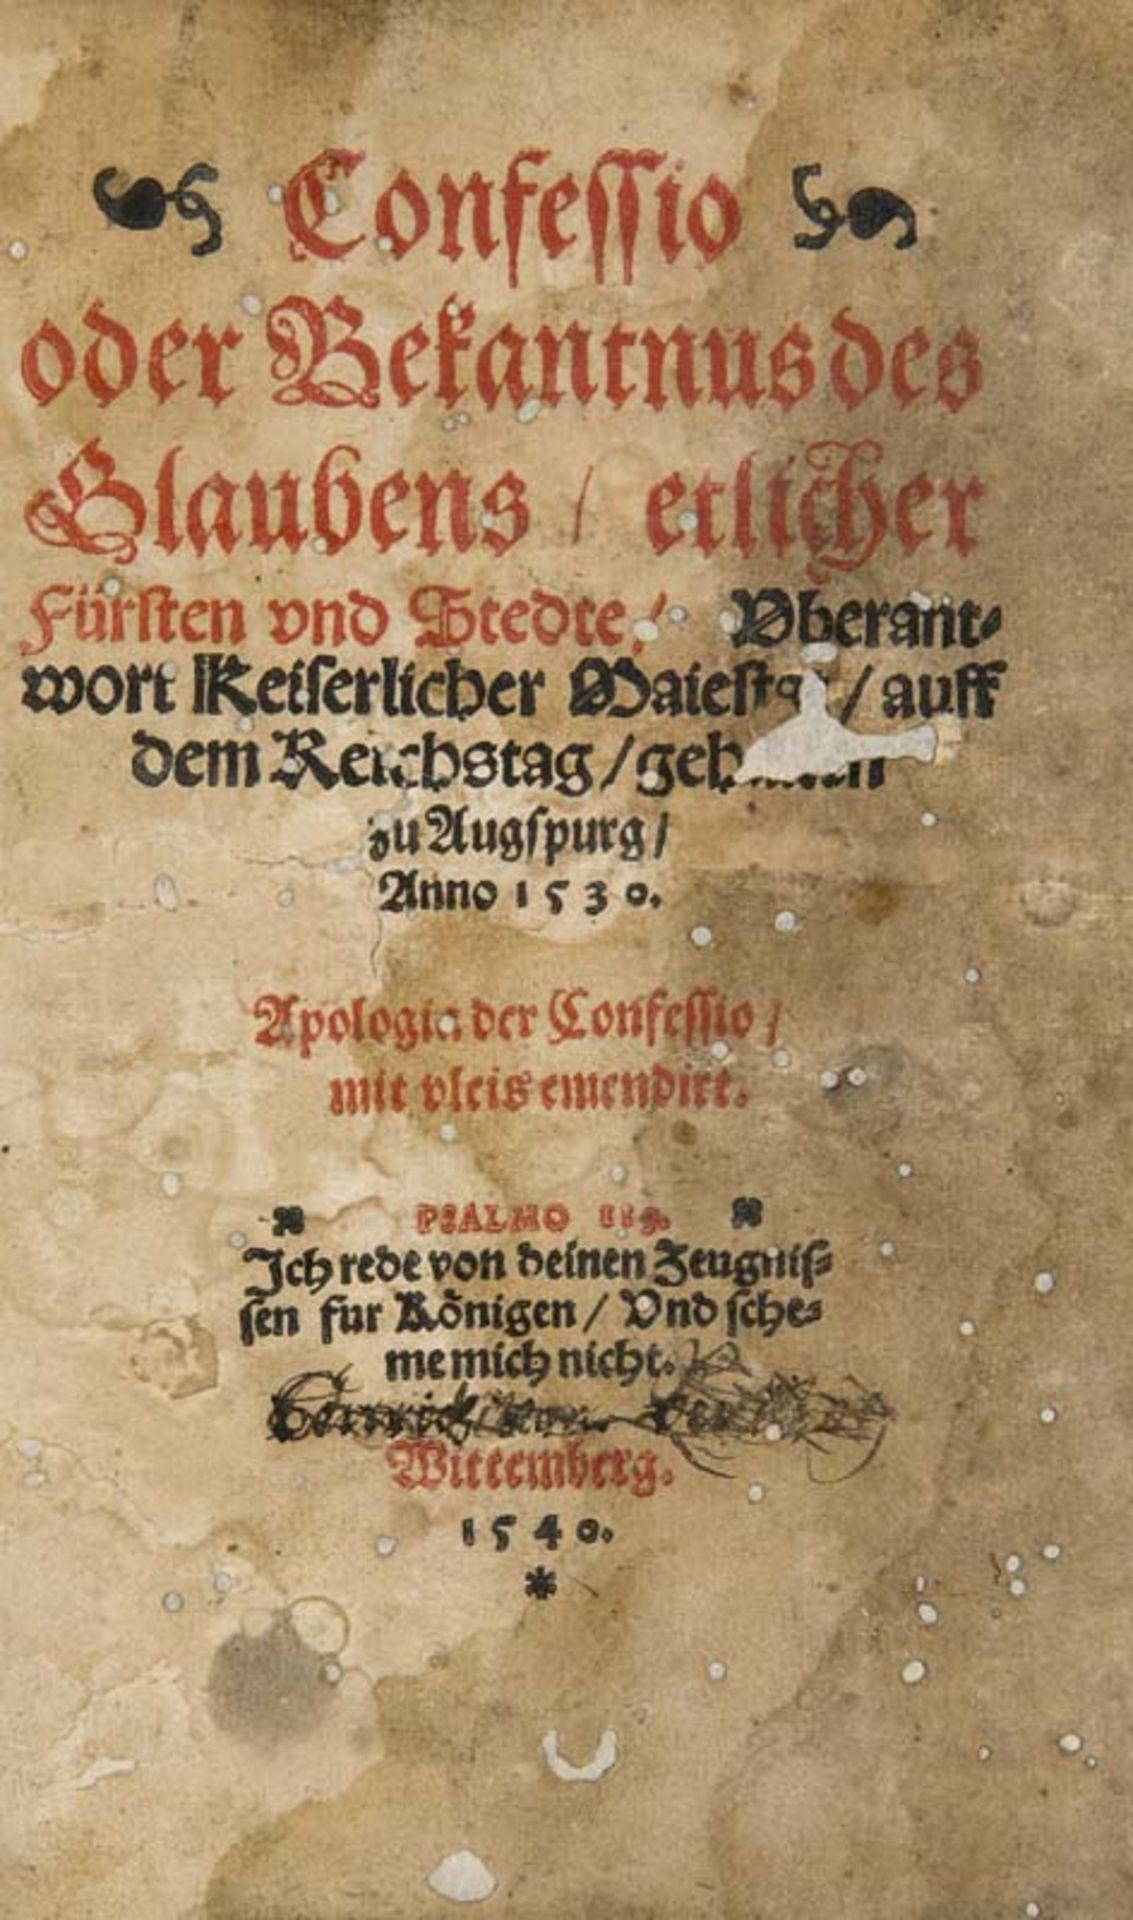 Confessio
oder Bekantnus des
Glaubens / etlicher
Fürsten vnd Stedte / Vberant-
wort Keiserlicher Maiestat / auff
dem Reichstag / gehalten
zu Augspurg /
Anno 1530.
Apologia der Confessio /
mit vleis emendirt.
PSALMO 119.
Ich rede von deinen Zeugnis-
sen fur Königen / Vnd sche-
me mich nicht.
Wittemberg.
1540.
*